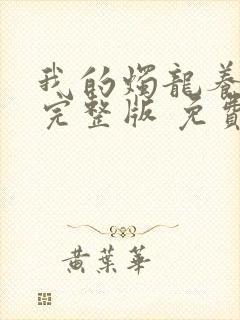 我的燭龍養
完整版 免費
黃葉華